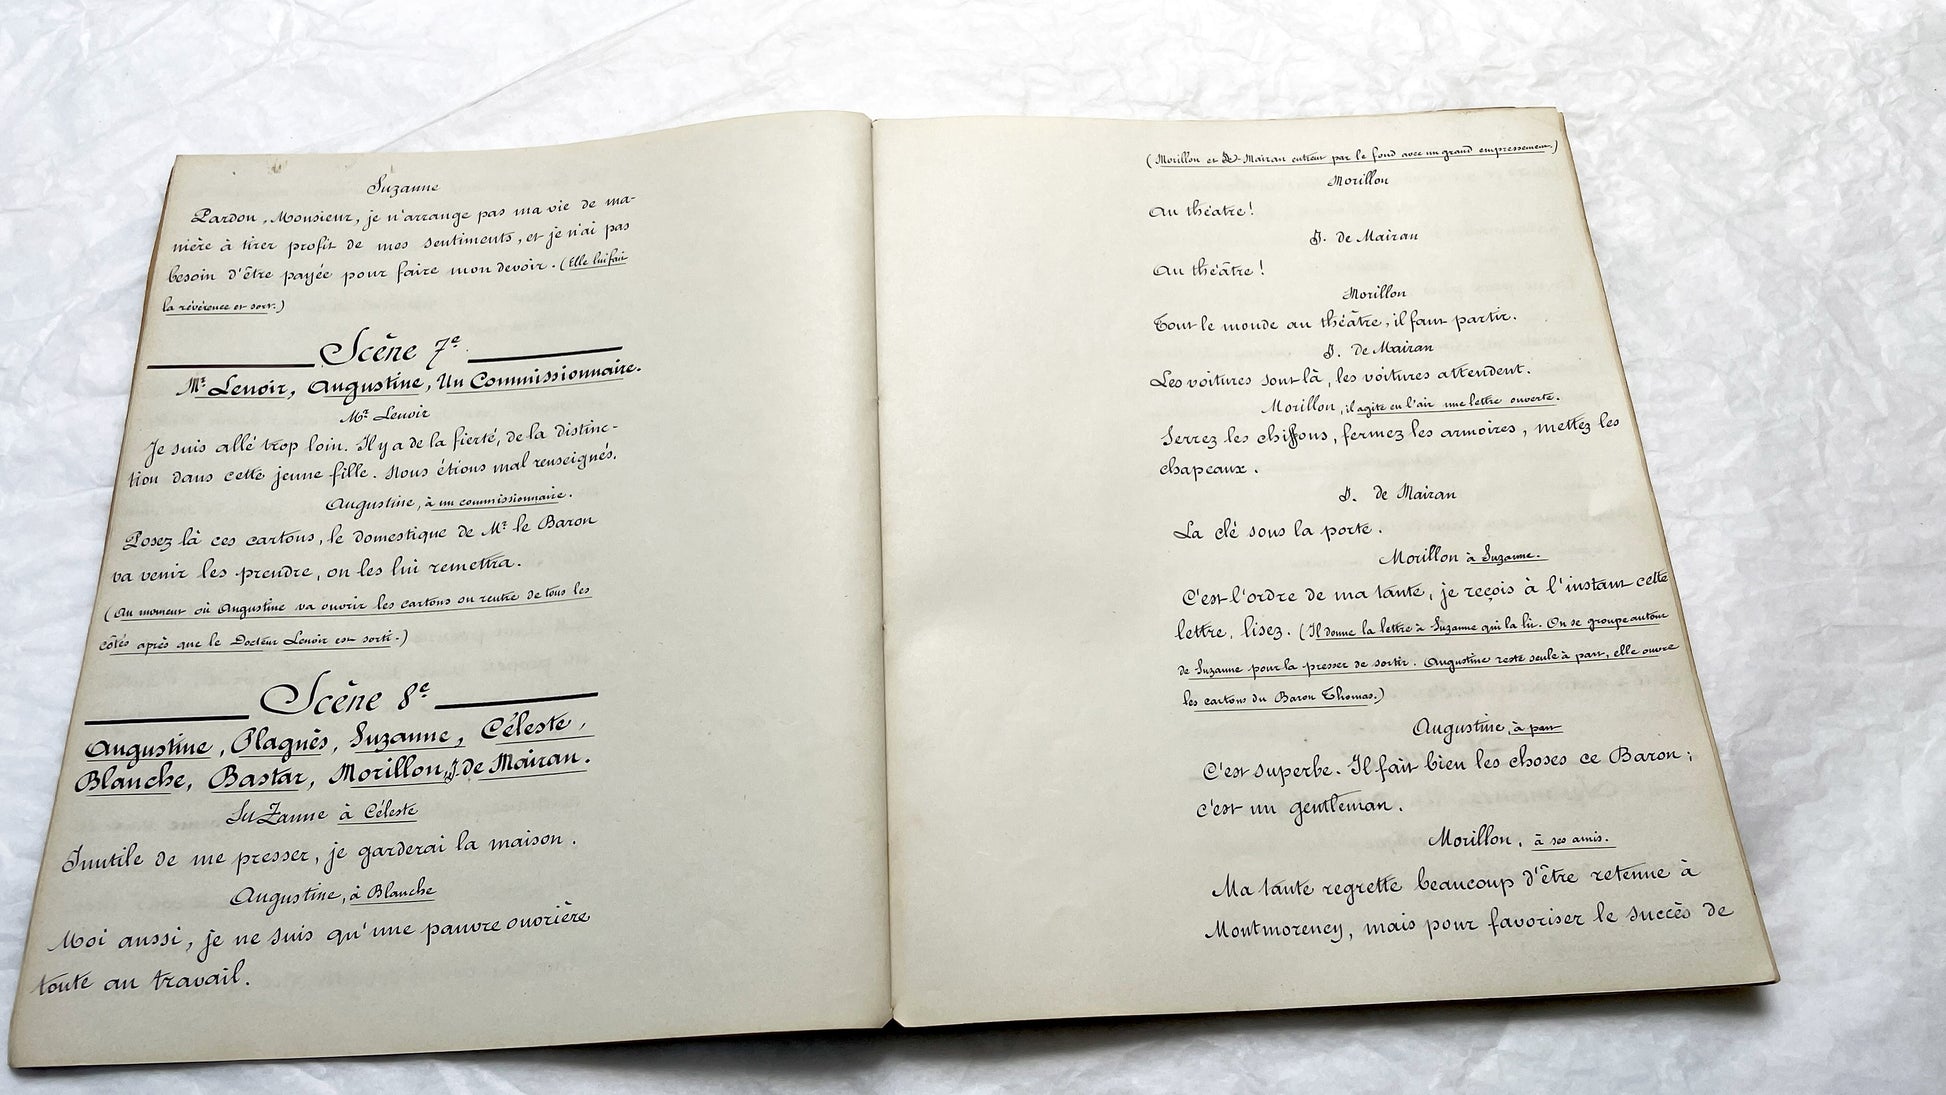 Suzanne
Pardon, Monsieur, je n'arrange pas ma vie de ma-
nière à tirer profit de mes sentiments, et je n'ai pas
besoin d'être payée pour faire mon devoir. (Elle lui fait
la révérence et sort.)
Scène 7e
Mr Lenoir, Augustine, Un Commissionnaire.
Mr Lenoir
Je suis allé trop loin. Il y a de la fierté, de la distinc-
tion dans cette jeune fille. Nous étions mal renseignés.
Augustine, à un commissionnaire.
Posez là ces cartons, le domestique de Mr le Baron
va venir les prendre, on les lui remettra.
(Au moment où Augustine va ouvrir les cartons on rentre de tous les
côtés après que le Docteur Lenoir est sorti.)
Scène 8e
Augustine, Plagnès, Suzanne, Céleste,
Blanche, Bastar, Morillon, J. de Mairan.
SuZanne à Céleste
Inutile de me presser, je garderai la maison.
Augustine, à Blanche
Moi aussi, je ne suis qu'une pauvre ouvrière
toute au travail.
(Morillon et de Mairan entrent par le fond avec un grand empressement.)
Morillon
Au théatre!
J. de Mairan
Au théâtre!
Morillon
Tout le monde au théâtre, il faut partir.
J. de Mairan
Les voitures sont là, les voitures attendent.
Morillon, il agite en l'air une lettre ouverte.
Serrez les chiffons, fermez les armoires, mettez les
chapeaux.
J. de Mairan
La clé sous la porte.
Morillon à Suzanne.
C'est l'ordre de ma tante, je reçois à l'instant cette
lettre, lisez. (Il donne la lettre à Suzanne qui la lit. On se groupe autour
de Suzanne pour la presser de sortir. Augustine reste seule à part, elle ouvre
les cartons du Baron Thomas.)
Augustine, à part
C'est superbe. Il fait bien les choses ce Baron;
c'est un gentleman.
Morillon, à ses amis.
Ma tante regrette beaucoup d'être retenue à
Montmorency, mais pour favoriser le succès de